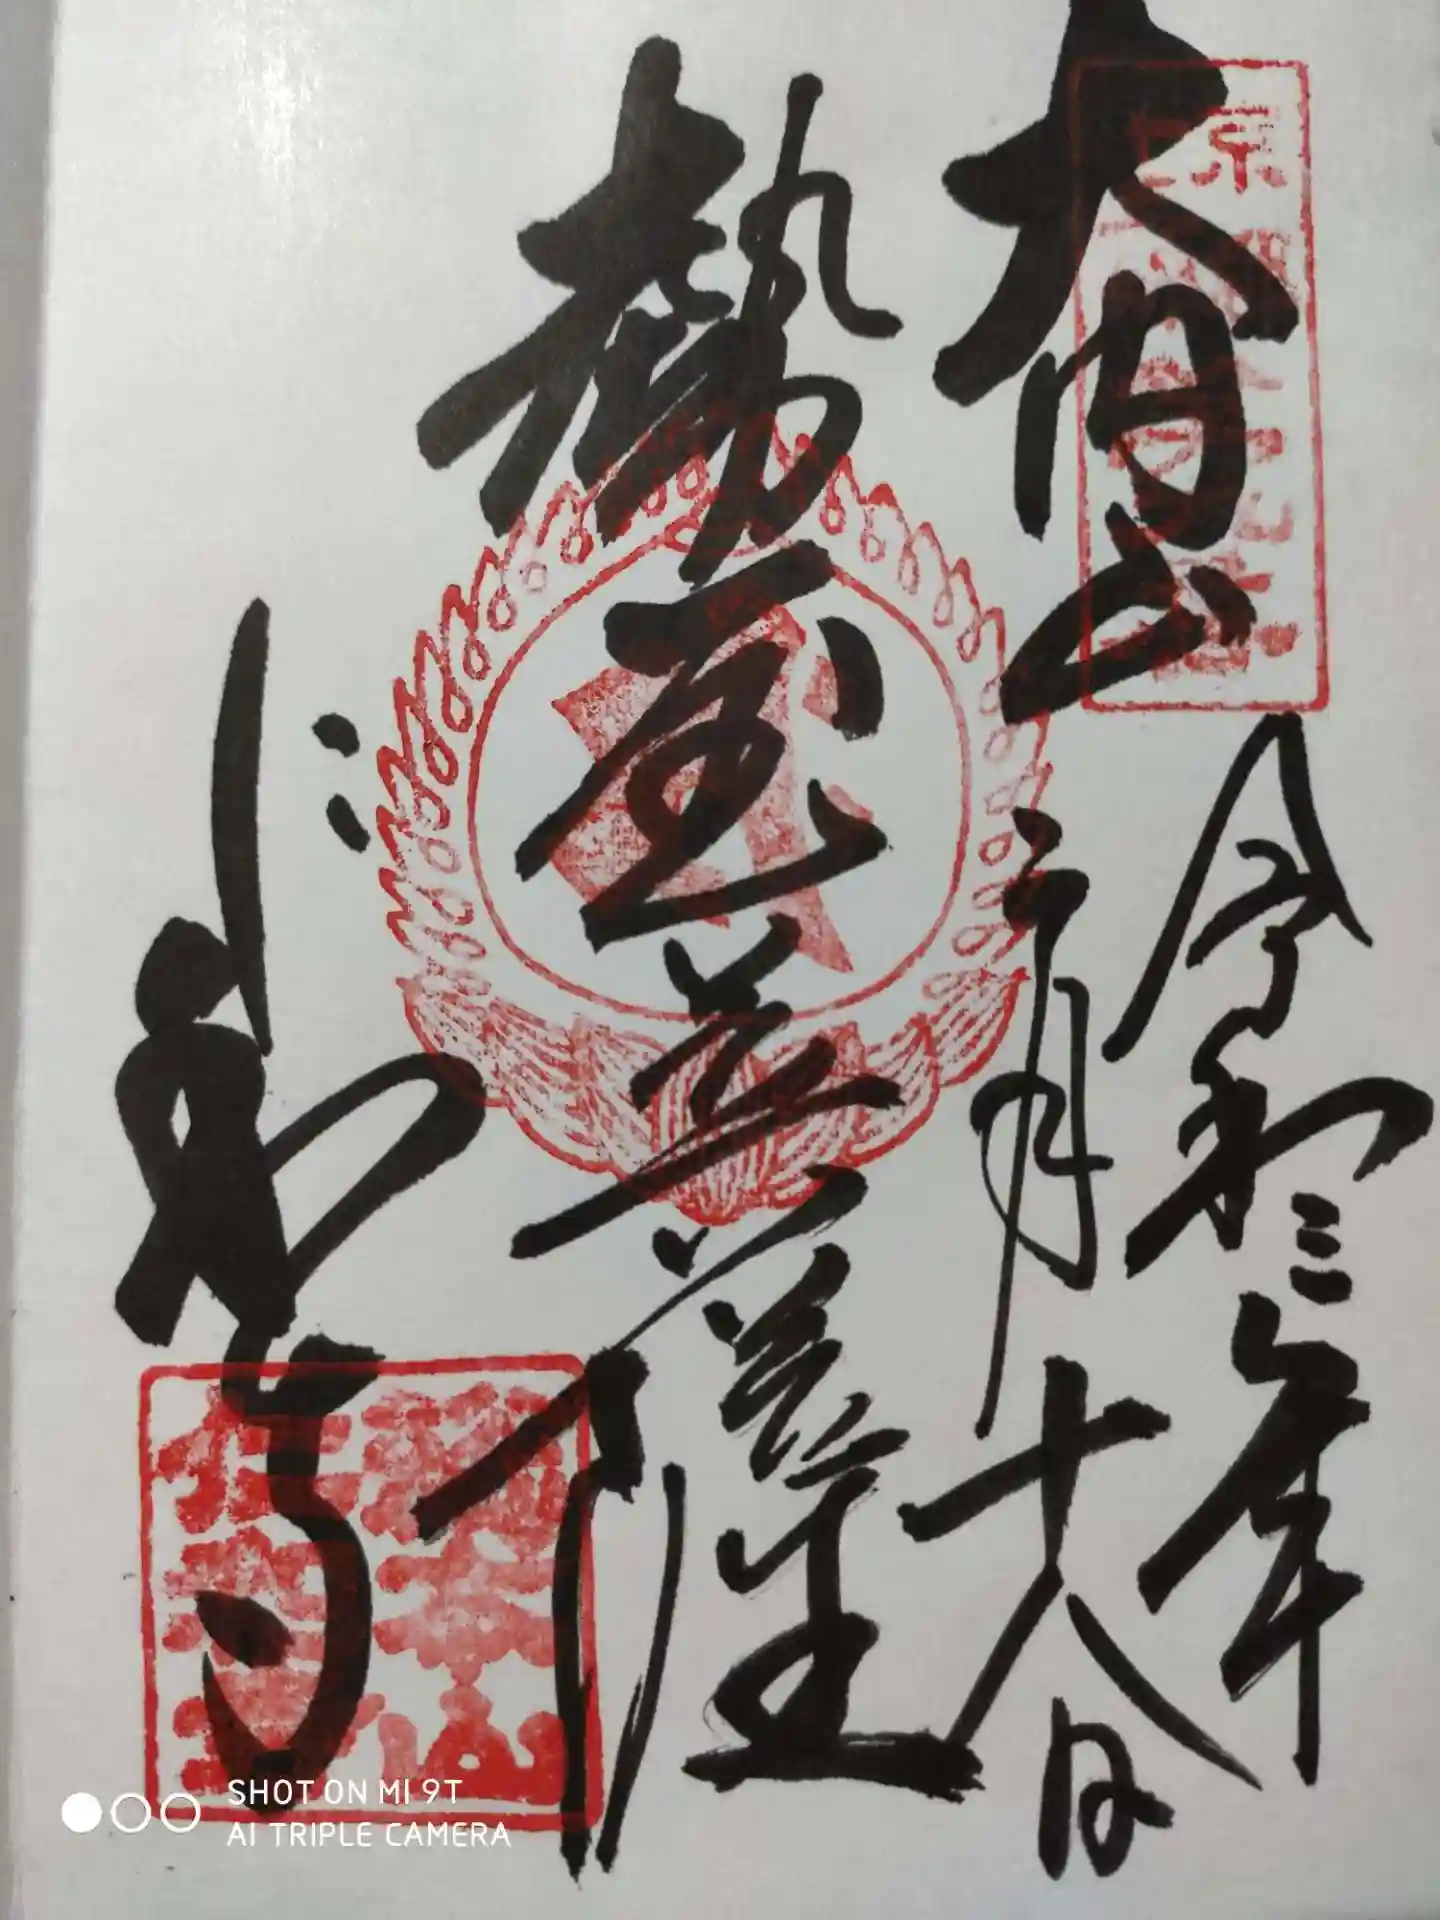 大内山
令和三年
三月十八日
勢至菩薩
仁和寺
SHOT ON MI 9T
AI TRIPLE CAMERA